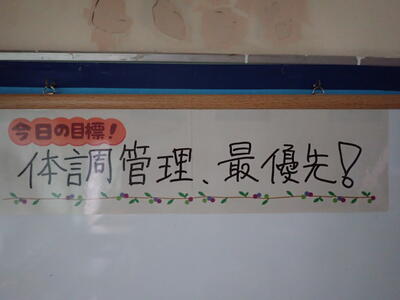 今日の目標!
体調管理、最優先!